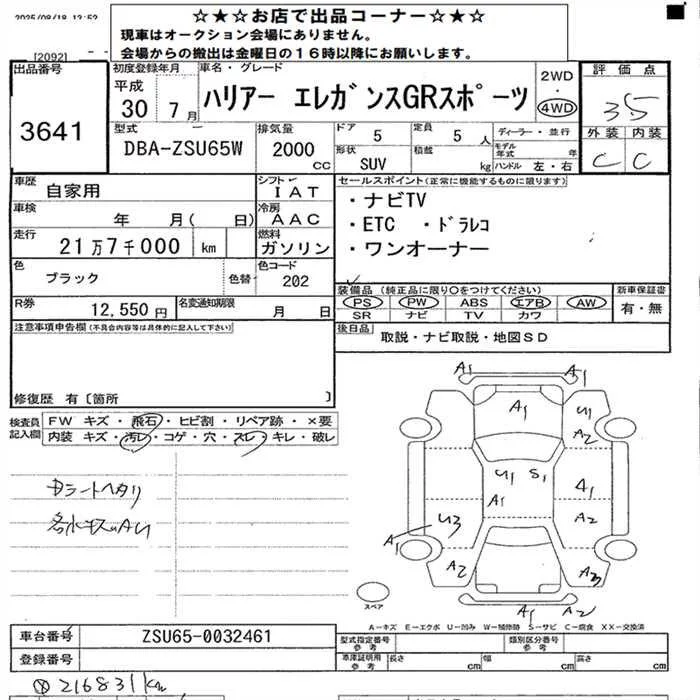 2025/08/18 13:52
★☆★お店で出品コーナー★☆★
現車はオークション会場にありません。
会場からの搬出は金曜日の16時以降にお願いします。
[2092]
出品番号
3641
初度登録年月
平成
30 7月
車名・グレード
ハリアー エレガンスGRスポーツ
2WD
・
4WD
評価点
3.5
外装 内装
C C
型式
DBA-ZSU65W
排気量
2000
CC
ドア 5
定員 5 人
形状 SUV
積載 kg
ディーラー・並行
モデル年式 年
ハンドル 左・右
車歴
自家用
シフト
IAT
車検
年 月( 日)
冷房
AAC
走行
21万7千000 km
燃料
ガソリン
色
ブラック
色替
色コード
202
R券
12,550円
名変通知期限
月 日
セールスポイント(正常に機能するものに限ります)
・ナビTV
・ETC ・ドラレコ
・ワンオーナー
装備品 (純正品に限り○をつけてください)
PS PW ABS エアB AW
SR ナビ TV カワ
新車保証書
有・無
後日品
取説・ナビ取説・地図SD
注意事項申告欄(不具合内容等は具体的に記入して下さい)
修復歴 有〔箇所 〕
検査員記入欄
FW キズ・飛石・ヒビ割・リペア跡・×要
内装 キズ・汚レ・コゲ・穴・スレ・キレ・破レ
A1 A1
A1 U1
A2
U1 S1
A1 A1
U3 A2
A1
A2 A3
A1 A2
スペア
A-キズ E-エクボ U-凹み W-補修跡 S-サビ C-腐食 XX-交換済
車台番号
ZSU65-0032461
登録番号
型式指定番号 参考
類別区分番号 参考
車庫証明用 参考
長さ cm 幅 cm 高さ cm
216831km